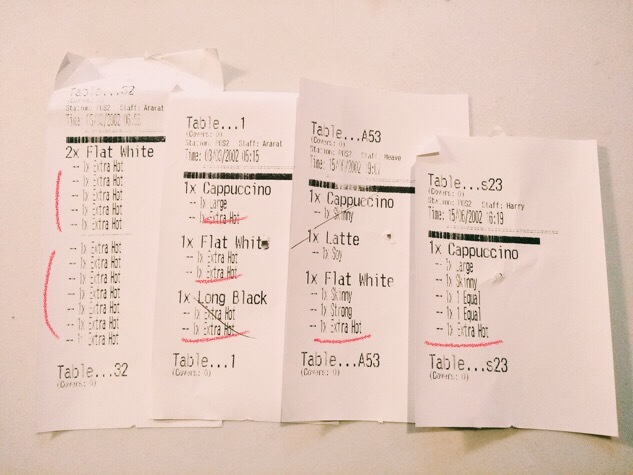 Table...32
(Covers: 0)
Station: POS2 Staff: Ararat
Time: 15/
2x Flat White
-- 1x Extra Hot
-- 1x Extra Hot
-- 1x Extra Hot
-- 1x Extra Hot
-- 1x Extra Hot
-- 1x Extra Hot
-- 1x Extra Hot
-- 1x Extra Hot
-- 1x Extra Hot
-- 1x Extra Hot
-- 1x Extra Hot
Table...32
(Covers: 0)
Table...1
(Covers: 0)
Station: POS2 Staff: Ararat
Time: /2002
1x Cappuccino
-- 1x Large
-- 1x Extra Hot
1x Flat White
-- 1x Extra Hot
-- 1x Extra Hot
1x Long Black
-- 1x Extra Hot
-- 1x Extra Hot
Table...1
(Covers: 0)
Table...A53
(Covers: 0)
Station: POS2 Staff: Meave
Time: 15/06/2002
1x Cappuccino
-- 1x Skinny
1x Latte
-- 1x Soy
1x Flat White
-- 1x Skinny
-- 1x Strong
-- 1x Extra Hot
Table...A53
(Covers: 0)
Table...s23
(Covers: 0)
Station: POS2 Staff: Harry
Time: 15/06/2002 16:19
1x Cappuccino
-- 1x Large
-- 1x Skinny
-- 1x 1 Equal
-- 1x 1 Equal
-- 1x Extra Hot
Table...s23
(Covers: 0)